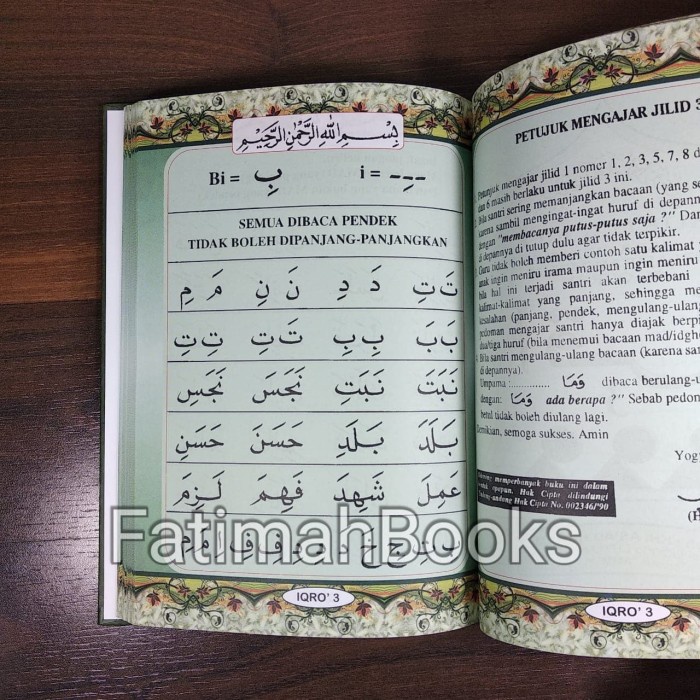 بِسْمِ اللهِ الرَّحْمٰنِ الرَّحِيْمِ
Bi = بِ i = ---ِ
SEMUA DIBACA PENDEK
TIDAK BOLEH DIPANJANG-PANJANGKAN
تَ تِ دَ دِ نَ نِ مَ مِ
بَ بَ بِ بِ تَ تِ تِ تِ
نَبَتَ نَبَتِ نَجَسَ نَجَسِ
بَلَدَ بَلَدِ حَسَنَ حَسَنِ
عَمِلَ شَهِدَ فَهِمَ لَزِمَ
FatimahBooks
IQRO' 3
PETUJUK MENGAJAR JILID 3
mengajar jilid 1 nomer 1, 2, 3, 5, 7, 8 d
dan 6 masih berlaku untuk jilid 3 ini.
Bila santri sering memanjangkan bacaan (yang se
karena sambil mengingat-ingat huruf di depann
dengan "membacanya putus-putus saja ?" Dan
di depannya di tutup dulu agar tidak terpikir.
Guru tidak boleh memberi contoh satu kalimat
anak ingin meniru irama maupun ingin meniru
bila hal ini terjadi santri akan terbebani
kalimat-kalimat yang panjang, sehingga me
kesalahan (panjang, pendek, mengulang-ulang
pedoman mengajar santri hanya diajak berpi
dua/tiga huruf (bila menemui bacaan mad/idgho
Bila santri mengulang-ulang bacaan (karena sam
di depannya).
Umpama :............ وَمَا dibaca berulang-u
dengan: وَمَا ada berapa ?" Sebab pedom
betul tidak boleh diulang lagi.
Demikian, semoga sukses. Amin
Yog
memperbanyak buku ini dalam
apapun. Hak Cipta dilindungi
Undang-undang Hak Cipta No. 002346/'90
IQRO' 3